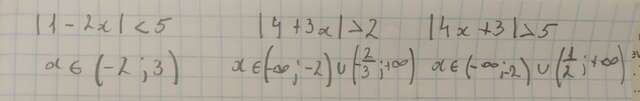 |1 - 2x| < 5 |4 + 3x| > 2 |4x + 3| > 5
x ∈ (-2 ; 3) x ∈ (-∞ ; -2) ∪ (2/3 ; +∞) x ∈ (-∞ ; -2) ∪ (1/2 ; +∞)